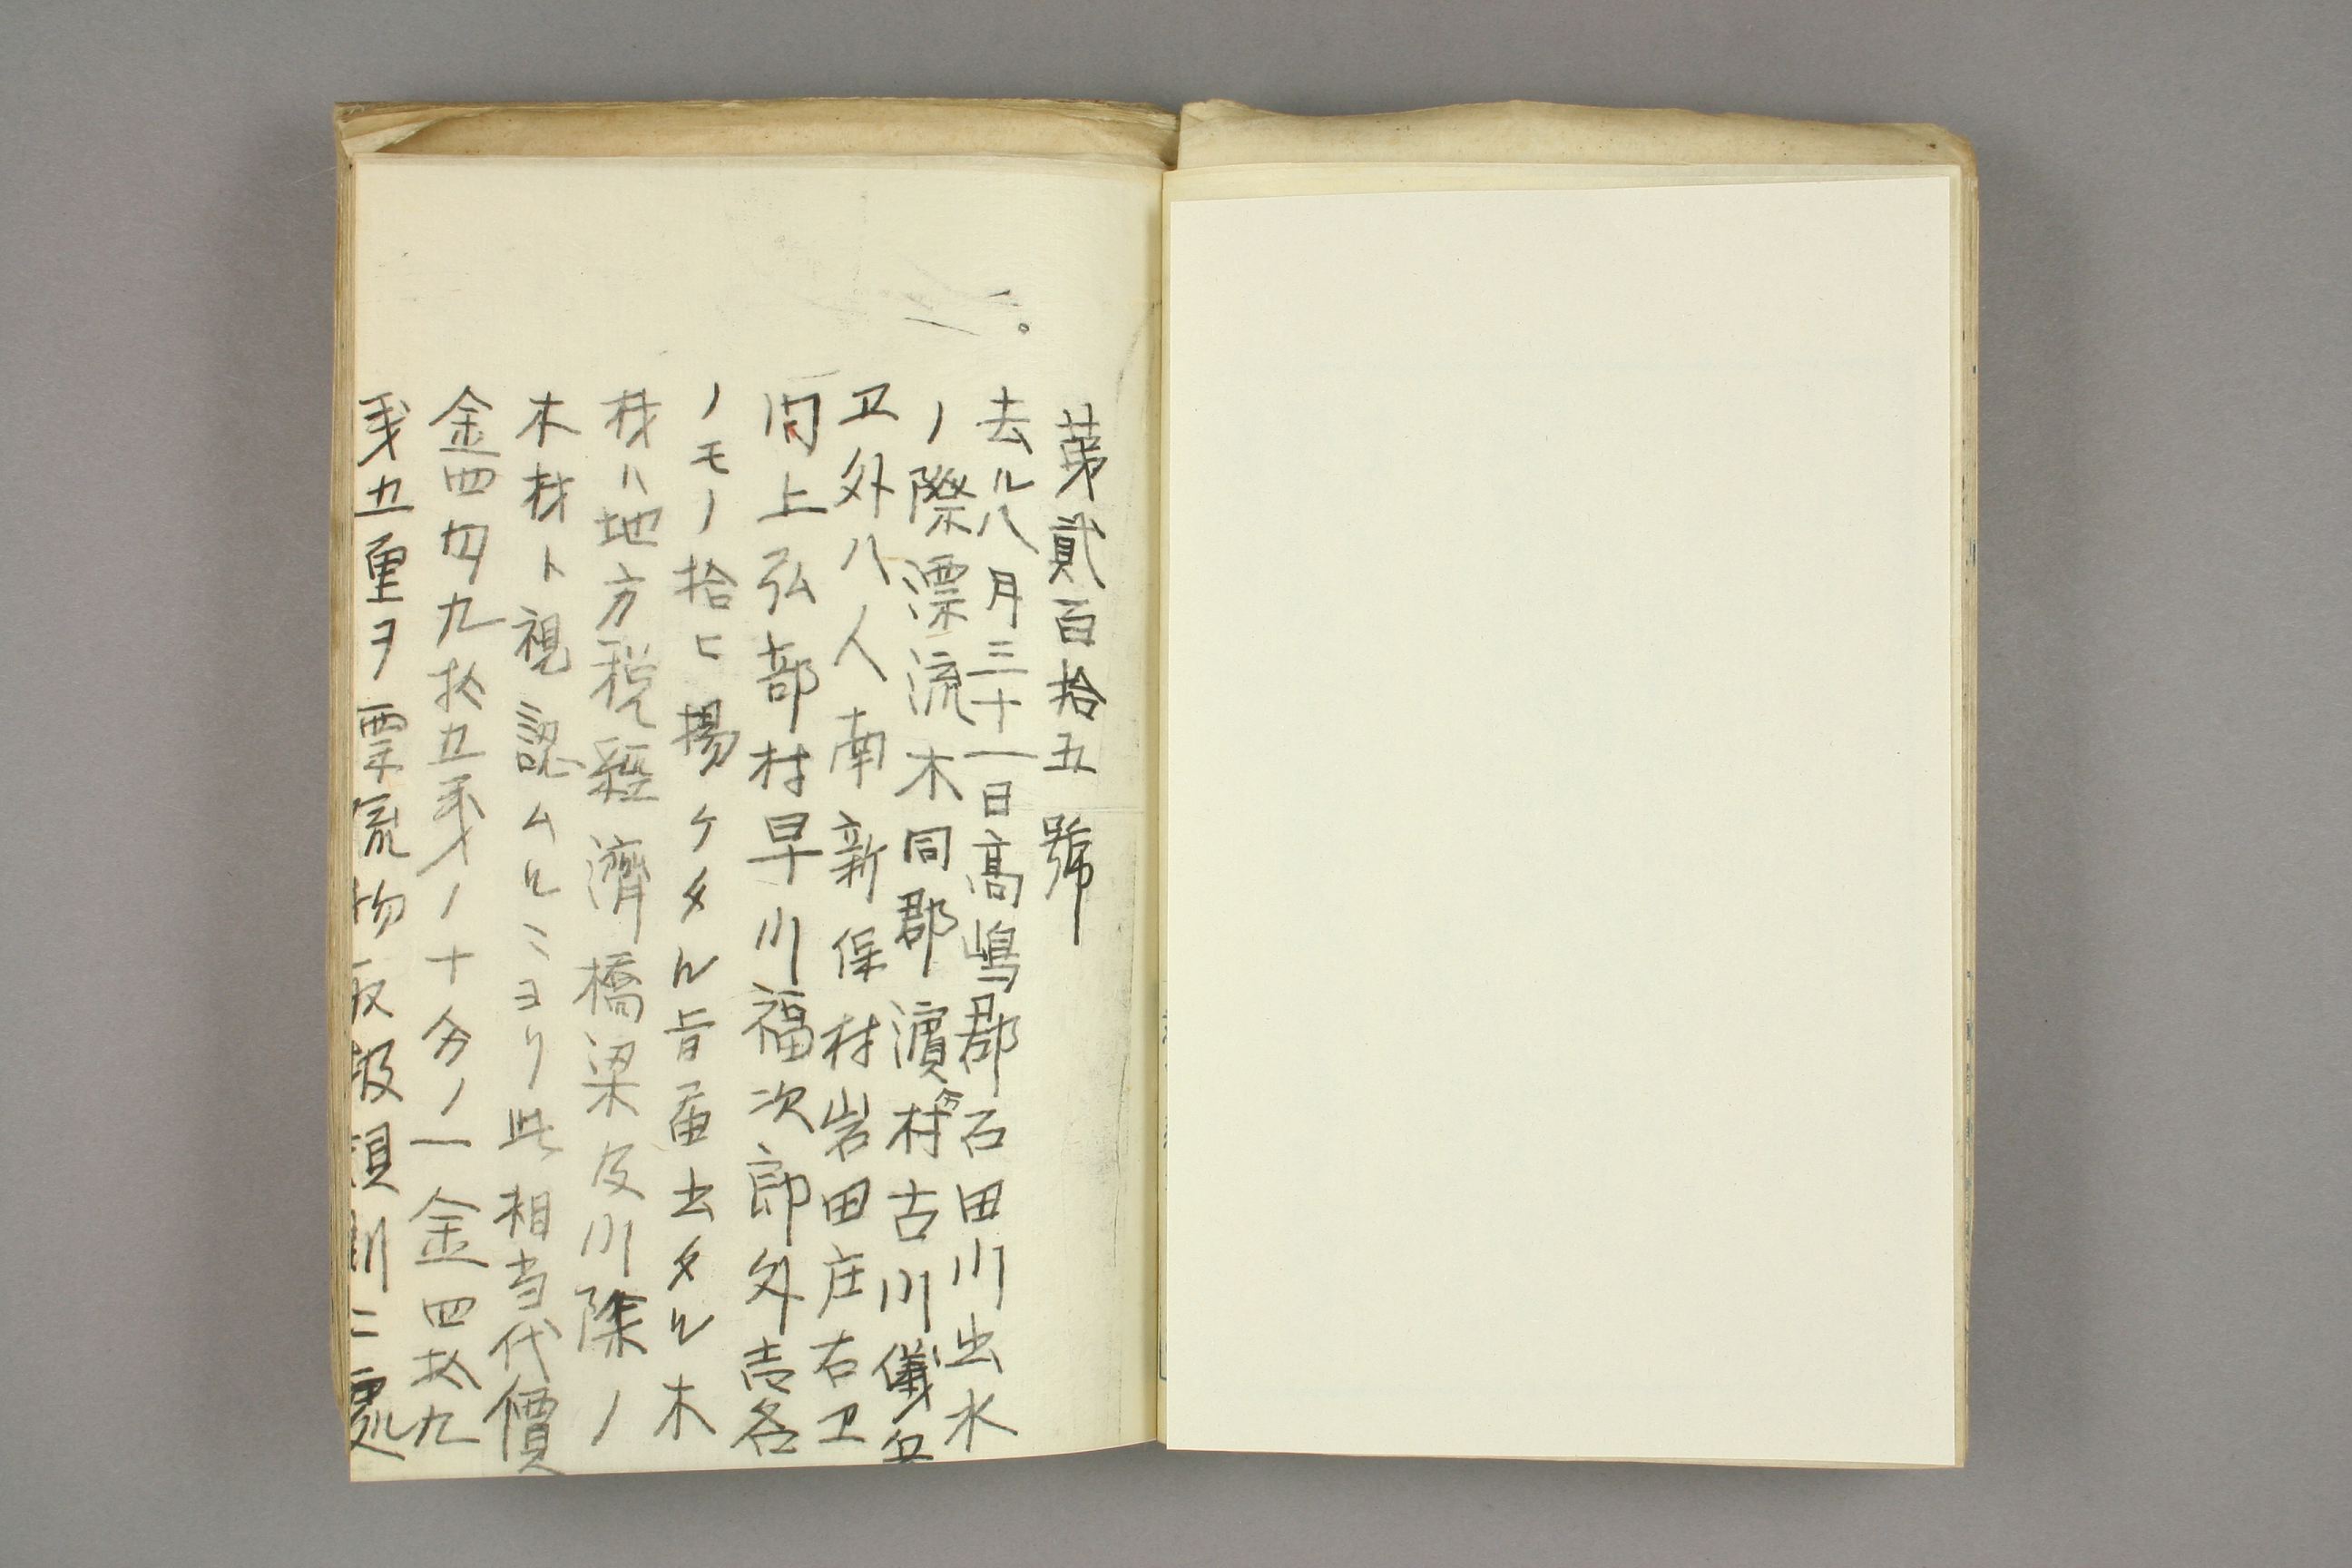 第貳百拾五號
去ル八月三十一日高嶋郡石田川出水
ノ際漂流木同郡濱分村古川儀兵
卫外八人南新保村岩田庄右卫
同上弘部村早川福次郎外壱名
ノモノ拾ヒ揚ケタル旨届出タル木
材ハ地方税經濟橋梁及川除ノ
木材ト視認ムルニヨリ此相当代價
金四円九拾五戋ノ十分ノ一金四拾九
戋五厘ヲ漂流物取扱規則ニ處